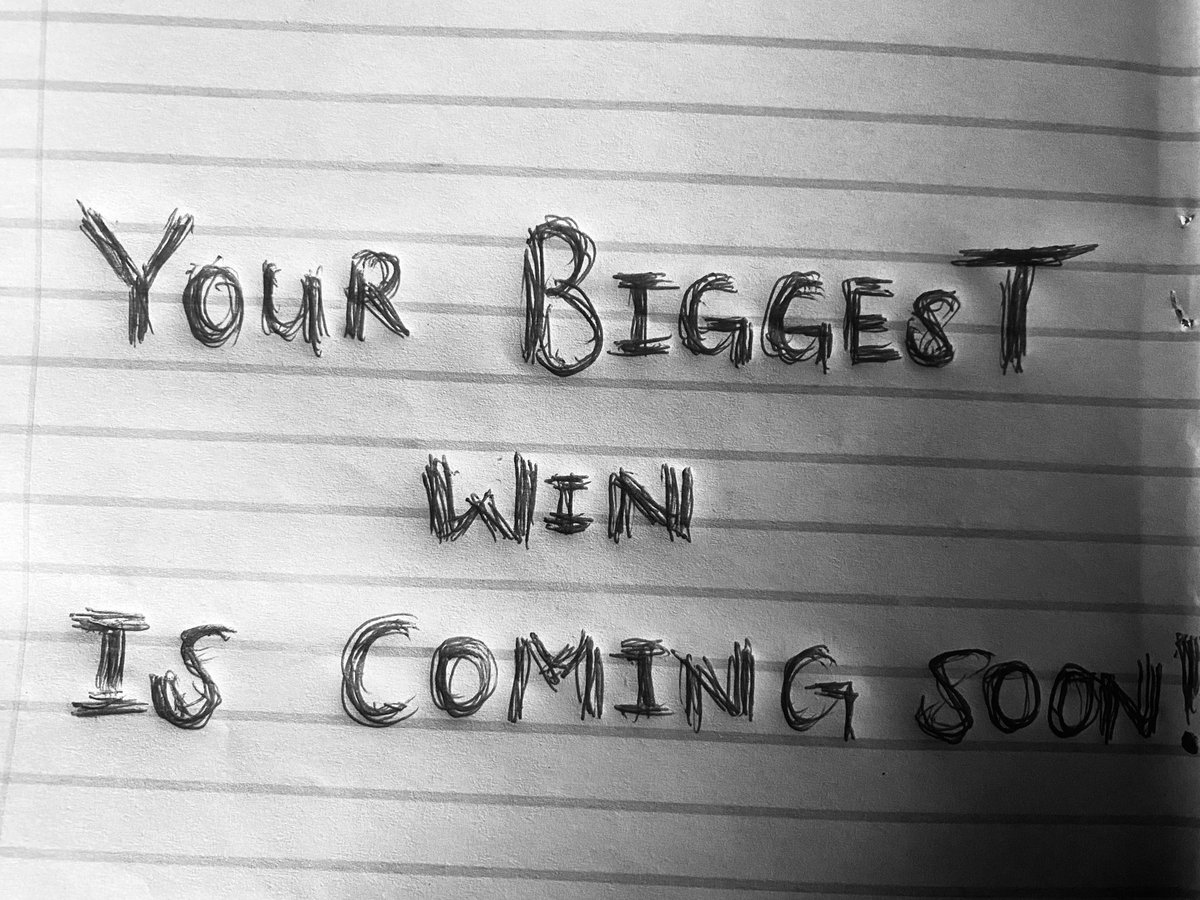 YOUR BIGGEST
WIN
IS COMING SOON!